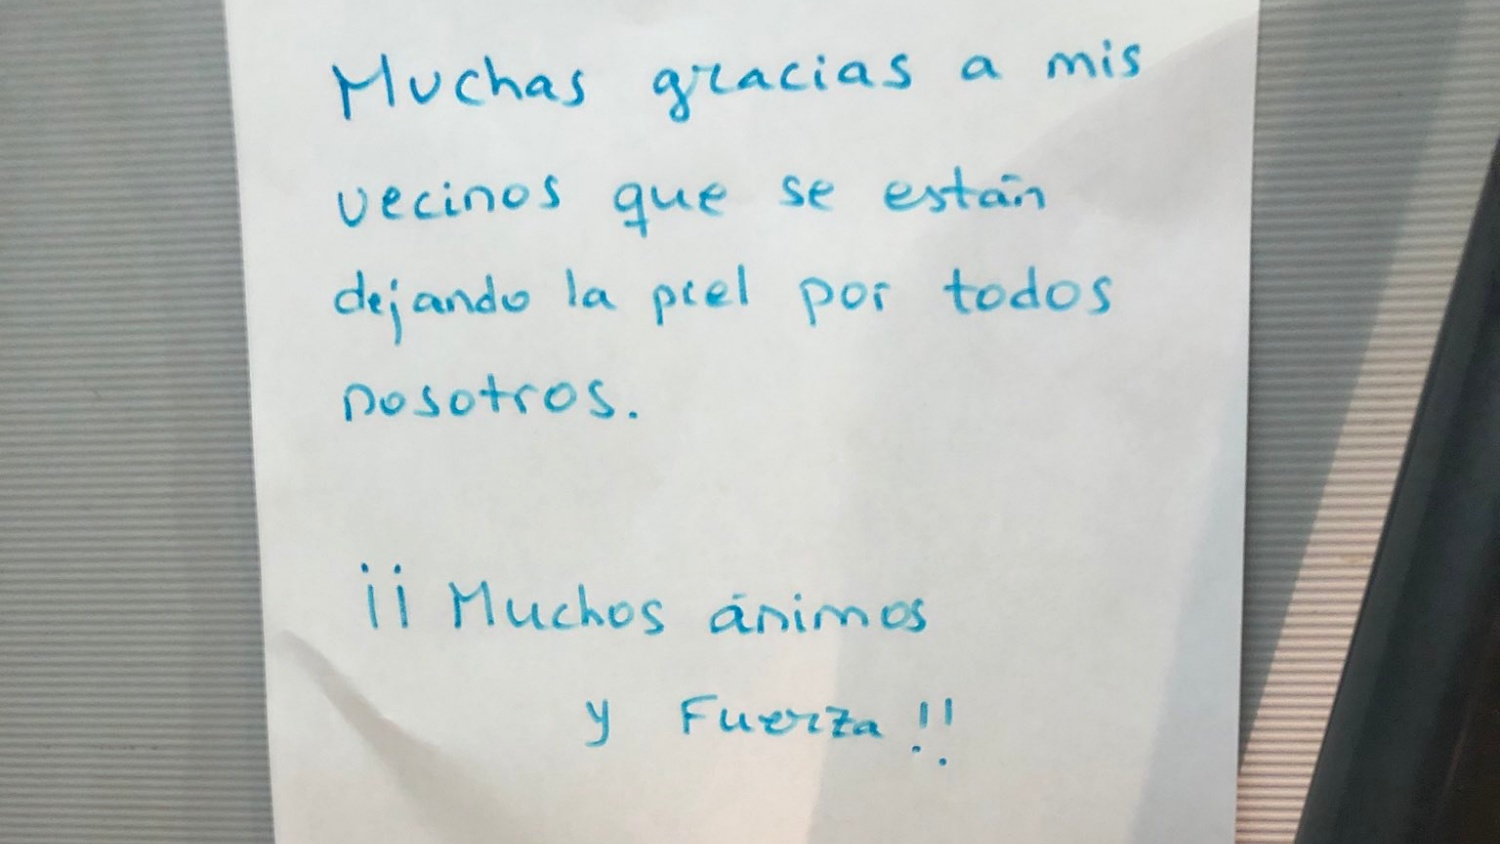 Muchas gracias a mis
vecinos que se están
dejando la piel por todos
nosotros.
¡¡ Muchos ánimos
y Fuerza!!